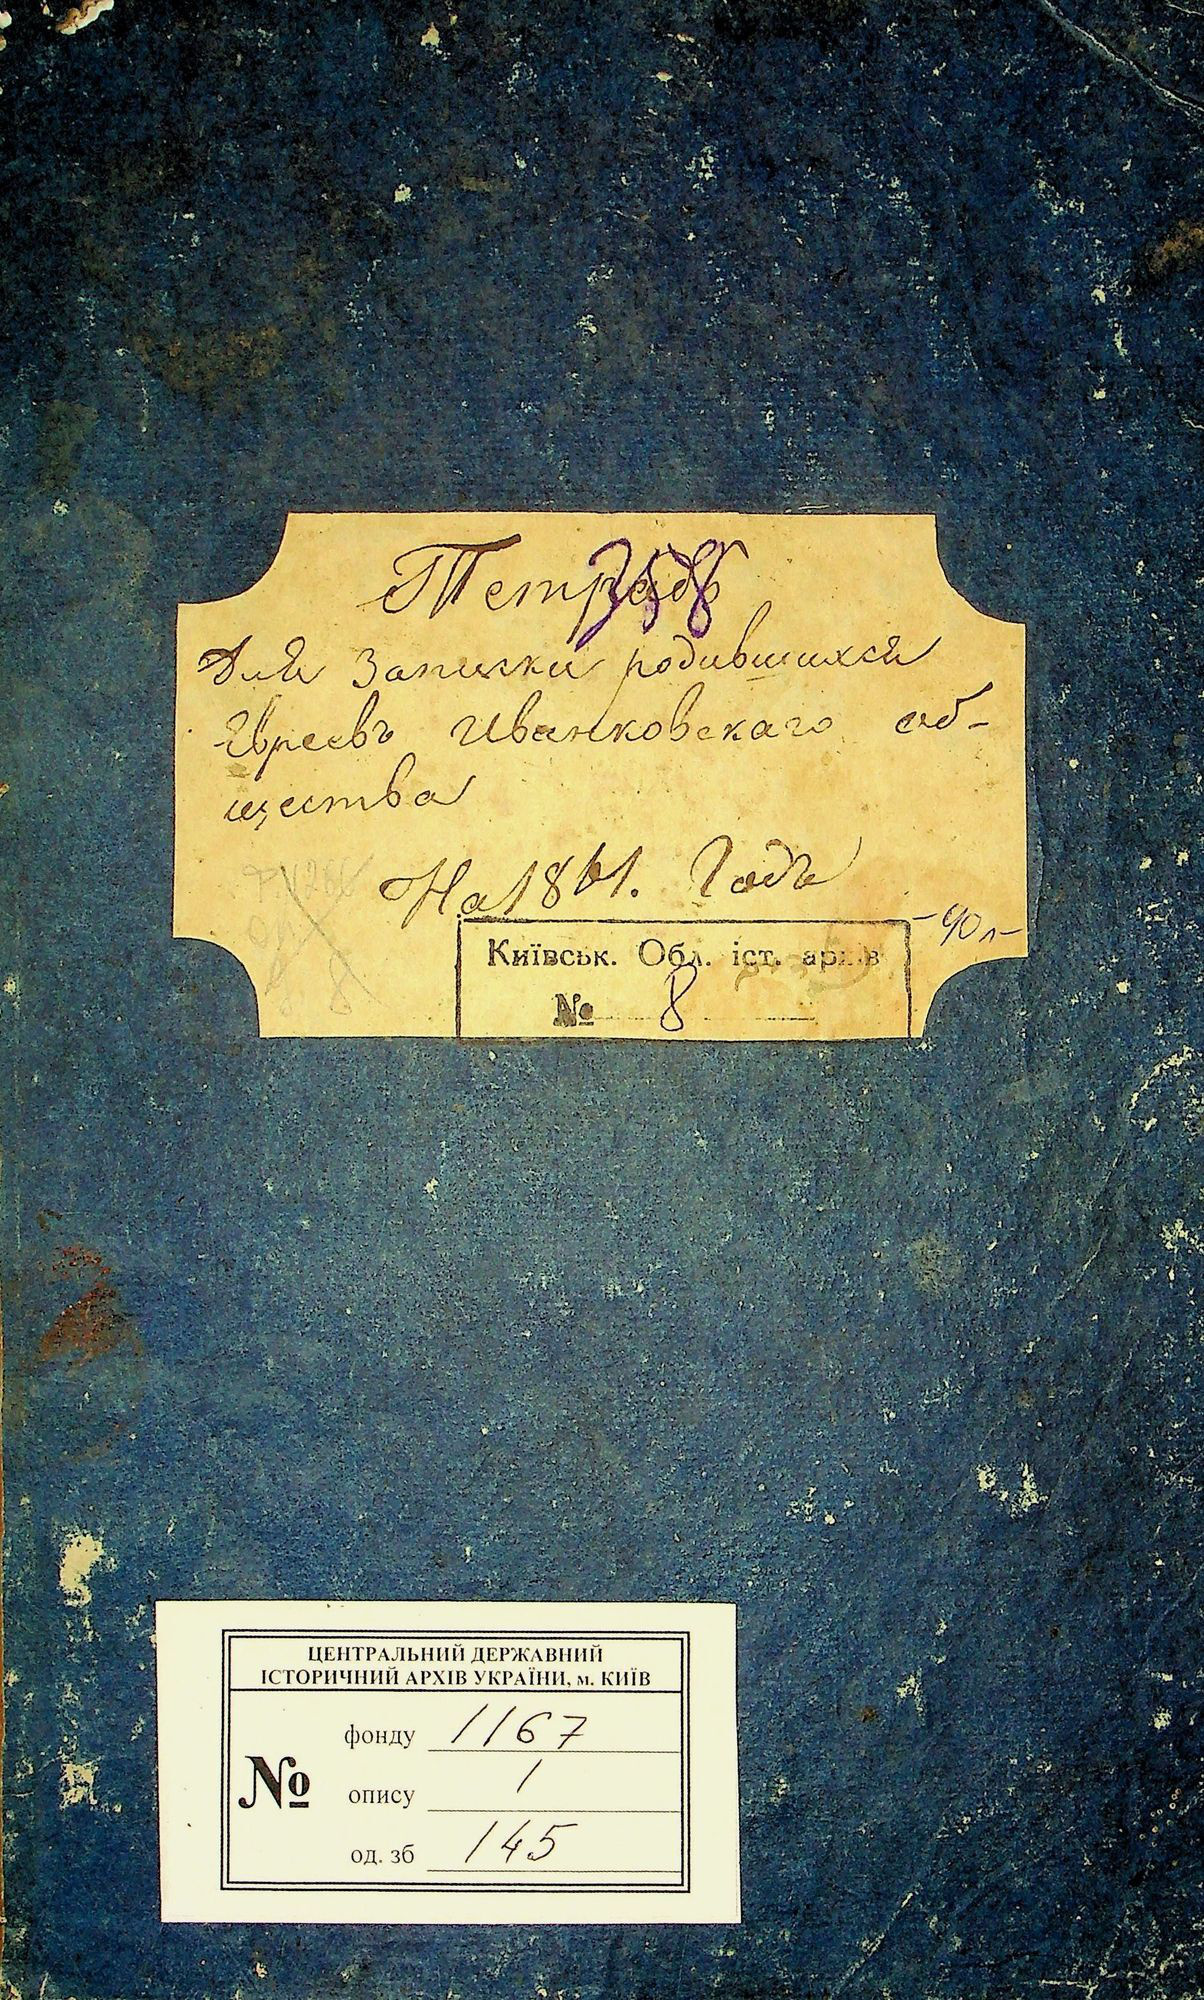 Тетрадь
358
Для Записки родившихся
Евреевъ Иванковскаго об-
щества
На 1861. Годъ
-90 л-
Київськ. Обл. іст. архів
№ 8
ЦЕНТРАЛЬНИЙ ДЕРЖАВНИЙ
ІСТОРИЧНИЙ АРХІВ УКРАЇНИ, м. КИЇВ
№
фонду 1167
опису 1
од. зб 145